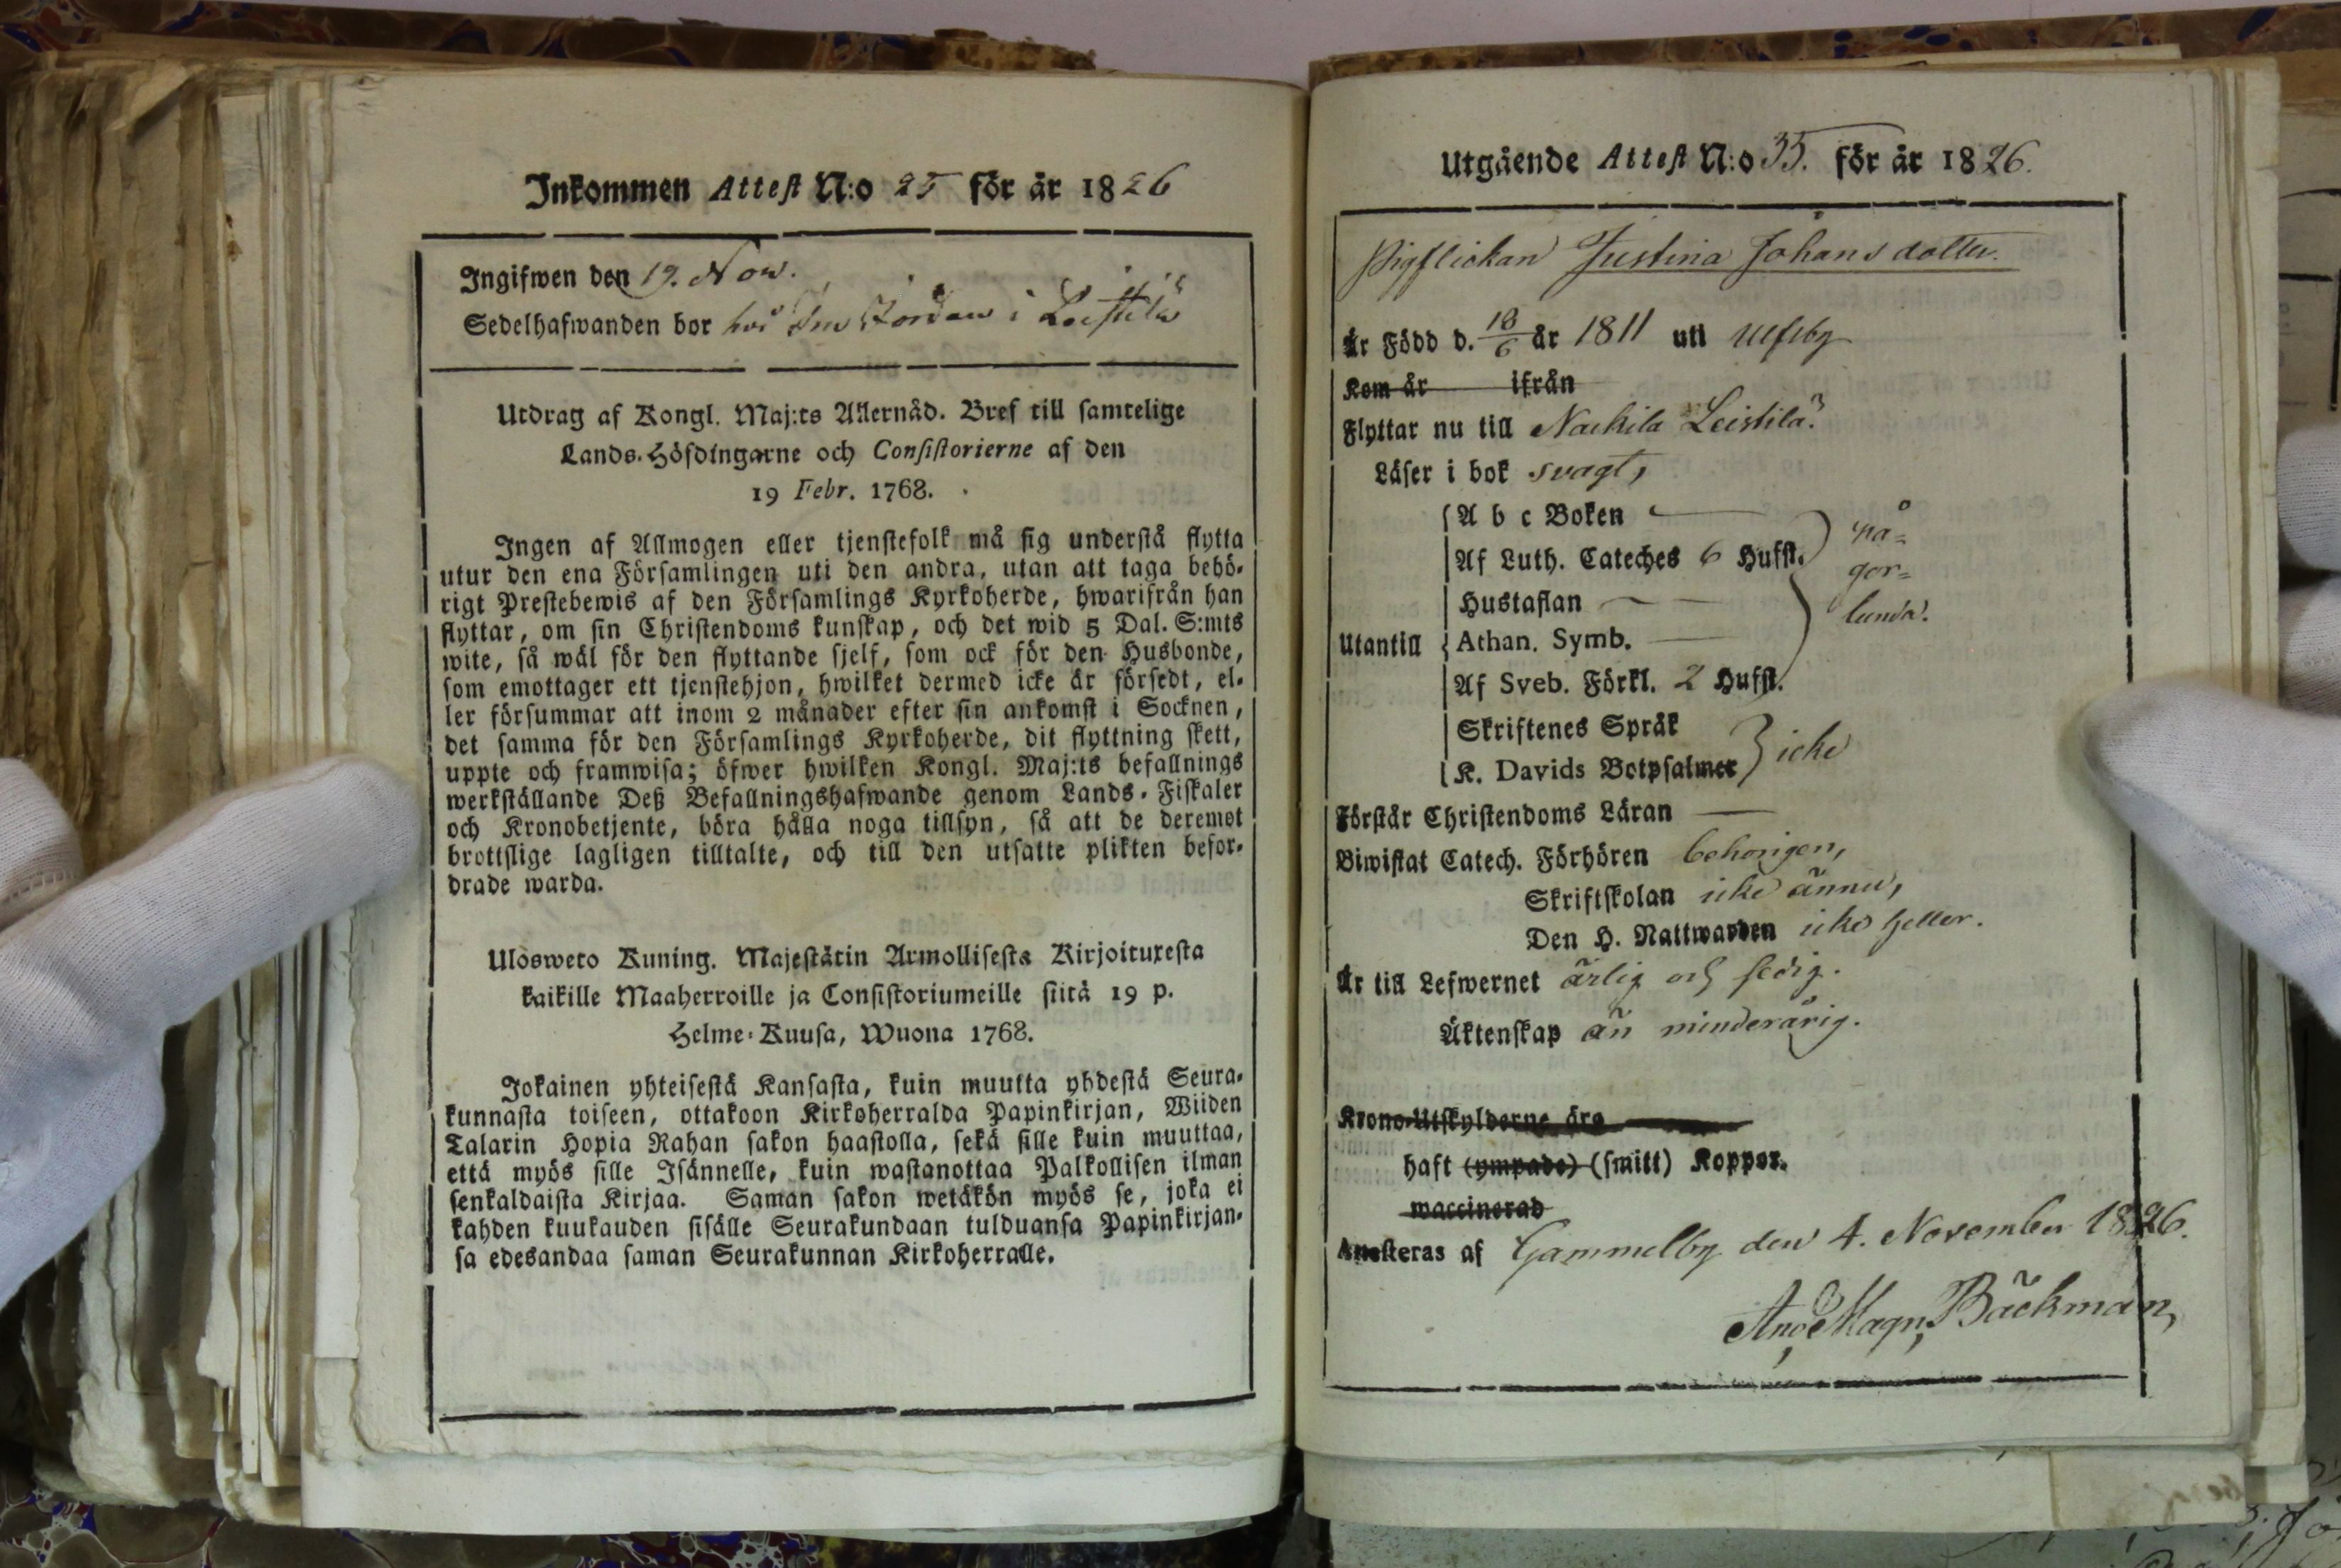 Inkommen Attest N:o 25 för år 1826
Ingifwen den 19. Nov.
Sedelhafwanden bor hos Jordan i Leistilä
Utdrag af Kongl. Maj:ts Allernåd. Bref till samtelige
Lands-Höfdingarne och Consistorierne af den
19 Febr. 1768.
Ingen af Allmogen eller tjenstefolk må sig understå flytta
utur den ena Församlingen uti den andra, utan att taga behö-
rigt Prestebewis af den Församlings Kyrkoherde, hwarifrån han
flyttar, om sin Christendoms kunskap, och det wid 5 Dal. S:mts
wite, så wäl för den flyttande sjelf, som ock för den Husbonde,
som emottager ett tjenstehjon, hwilket dermed icke är försedt, el-
ler försummar att inom 2 månader efter sin ankomst i Socknen,
det samma för den Församlings Kyrkoherde, dit flyttning skett,
uppte och framwisa; öfwer hwilken Kongl. Maj:ts befallnings
werkställande Deß Befallningshafwande genom Lands-Fiskaler
och Kronobetjente, böra hålla noga tillsyn, så att de deremot
brottslige lagligen tilltalte, och till den utsatte plikten befor-
drade warda.
Ulosweto Kuning. Majestätin Armollisesta Kirjoituxesta
kaikille Maaherroille ja Consistoriumeille siitä 19 p.
Helme-Kuusa, Wuona 1768.
Jokainen yhteisestä Kansasta, kuin muutta yhdestä Seura-
kunnasta toiseen, ottakoon Kirkoherralda Papinkirjan, Wiiden
Talarin Hopia Rahan sakon haastolla, sekä sille kuin muuttaa,
että myös sille Isännelle, kuin wastanottaa Palkollisen ilman
senkaldaista Kirjaa. Saman sakon wetäkön myös se, joka ei
kahden kuukauden sisälle Seurakundaan tulduansa Papinkirjan-
sa edesandaa saman Seurakunnan Kirkoherralle.
Utgående Attest N:o 35. för år 1826.
Pigflickan Justina Johansdotter.
Är Född d. 18/6 år 1811 uti Ulfsby
Kom år ifrån
Flyttar nu till Nackila Leistilä.
Läser i bok svagt,
A b c Boken
Af Luth. Cateches 6 Hufst. nå-
gor-
Hustaflan lunda.
Utantill Athan. Symb.
Af Sveb. Förkl. 2 Hufst.
Skriftenes Språk
K. Davids Botpsalmer icke
Förstår Christendoms Läran
Biwistat Catech. Förhören behörigen,
Skriftskolan icke ännu,
Den H. Nattwarden icke heller.
Är till Lefwernet ärlig och sedig.
Äktenskap än minderårig.
Krono-Utskylderne äro
haft (ympade) (smitt) Koppor.
waccinerad
Attesteras af Gammelby den 4. November 1826.
And. Magn. Bäckman,